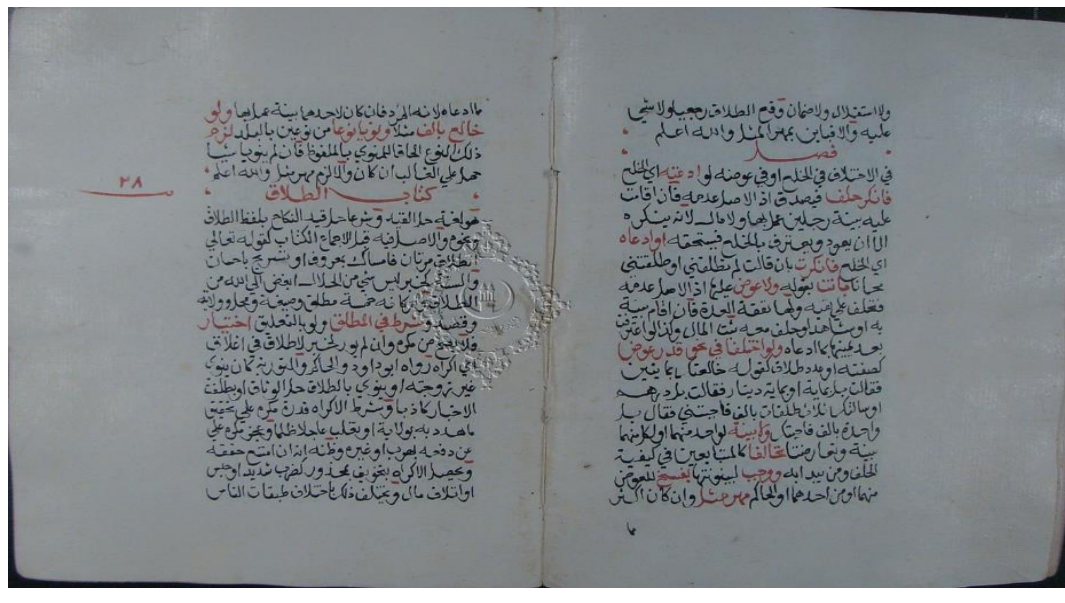 ولا استقلال ولا ضمان وقع الطلاق رجعيا ولا شي
عليه والا فبائن بمهر المثل والله اعلم
فصل
في الاختلاف في الخلع او في عوضه لو ادعته اي الخلع
فانكر حلف فيصدق اذ الاصل عدمه فان اقامت
عليه بينة رجلين عمل بها ولا مال لانه ينكره
الا ان يعود ويعترف بالخلع فيستحقه او ادعاه
اي الخلع فانكرت بان قالت لم تطلقني او طلقتني
مجانا بانت بقوله ولا عوض عليها اذ الاصل عدمه
فتحلف على نفيه ولها نفقة العدة فان اقام بينة
به او شاهدا وحلف معه ثبت المال وكذا لو اعترفت
بعد يمينها بما ادعاه ولو اختلفا في نحو قدر عوض
كصفته او عدد طلاق كقوله خالعتك بمايتين
فقالت بل بماية او بماية دينار فقالت بل درهم
او سالتك ثلاث طلقات بالف فاجبتني فقال بل
واحدة بالف فاجبتك ولا بينة لواحد منهما او لكل منهما
بينة وتعارضتا تحالفا كالمتبايعين في كيفية
الحلف ومن يبدا به ووجب لبينونتها بفسخ للعوض
منهما او من احدهما او الحاكم مهر مثل وان كان اكثر
ما
ما ادعاه لانه المرد فان كان لاحدهما بينة عمل بها ولو
خالع بالف مثلا ونويا نوعا من نوعين بالبلد لزم
ذلك النوع الحاقا للمنوي بالملفوظ فان لم ينويا شيا
حمل علي الغالب ان كان والا لزم مهر مثل والله اعلم
٢٨
كتاب الطلاق
هو لغة حل القيد وشرعا حل قيد النكاح بلفظ الطلاق
ونحوه والاصل فيه قبل الاجماع الكتاب كقوله تعالي
الطلاق مرتان فامساك بمعروف او تسريح باحسان
والسنة كخبر ليس شي من الحلال ابغض الي الله من
الطلاق اركانه خمسة مطلق وصيغة ومحل وولاية
وقصد وشرط في المطلق ولو بالتعليق اختيار
فلا يصح من مكره وان لم يور لخبر لا طلاق في اغلاق
اي اكراه رواه ابو داود والحاكم والتورية كان ينوي
غير زوجته او ينوي بالطلاق حل الوثاق او بطلقت
الاخبار كاذبا وشرط الاكراه قدرة مكره علي تحقيق
ما هدد به بولاية او تغلب عاجلا ظلما وعجز مكره علي
عن دفعه بهرب او غيره وظنه انه ان امتنع حققه
ويحصل الاكراه بتخويف بمحذور كضرب شديد او حبس
او اتلاف مال ويختلف ذلك باختلاف طبقات الناس